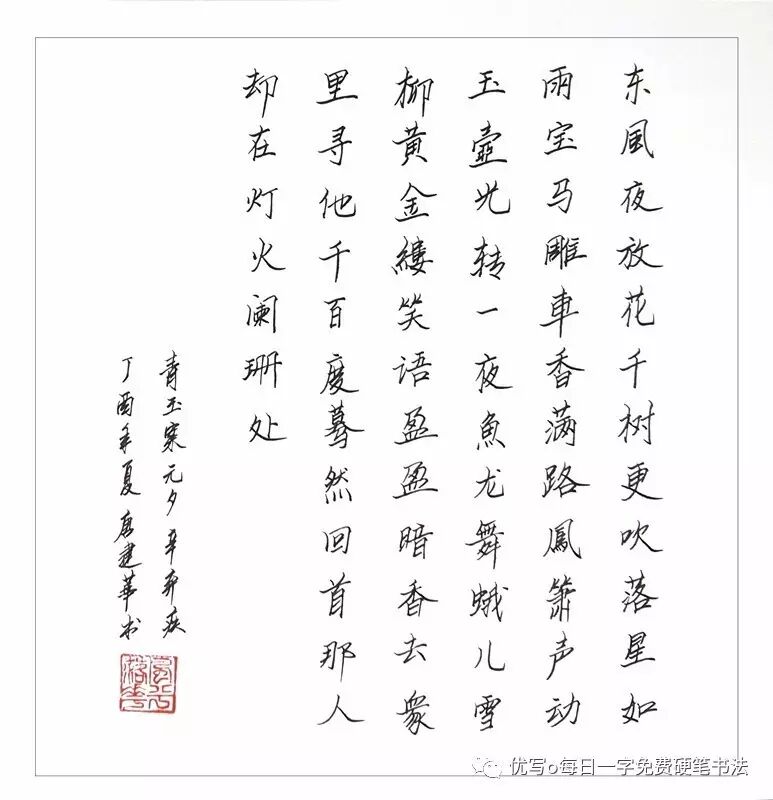 东風夜放花千树更吹落星如
雨宝马雕車香满路鳳箫声动
玉壶光转一夜魚龙舞蛾儿雪
柳黄金縷笑语盈盈暗香去衆
里寻他千百度蓦然回首那人
却在灯火阑珊处
青玉案元夕辛弃疾
丁酉年夏唐建華书
优写o每日一字免费硬笔书法